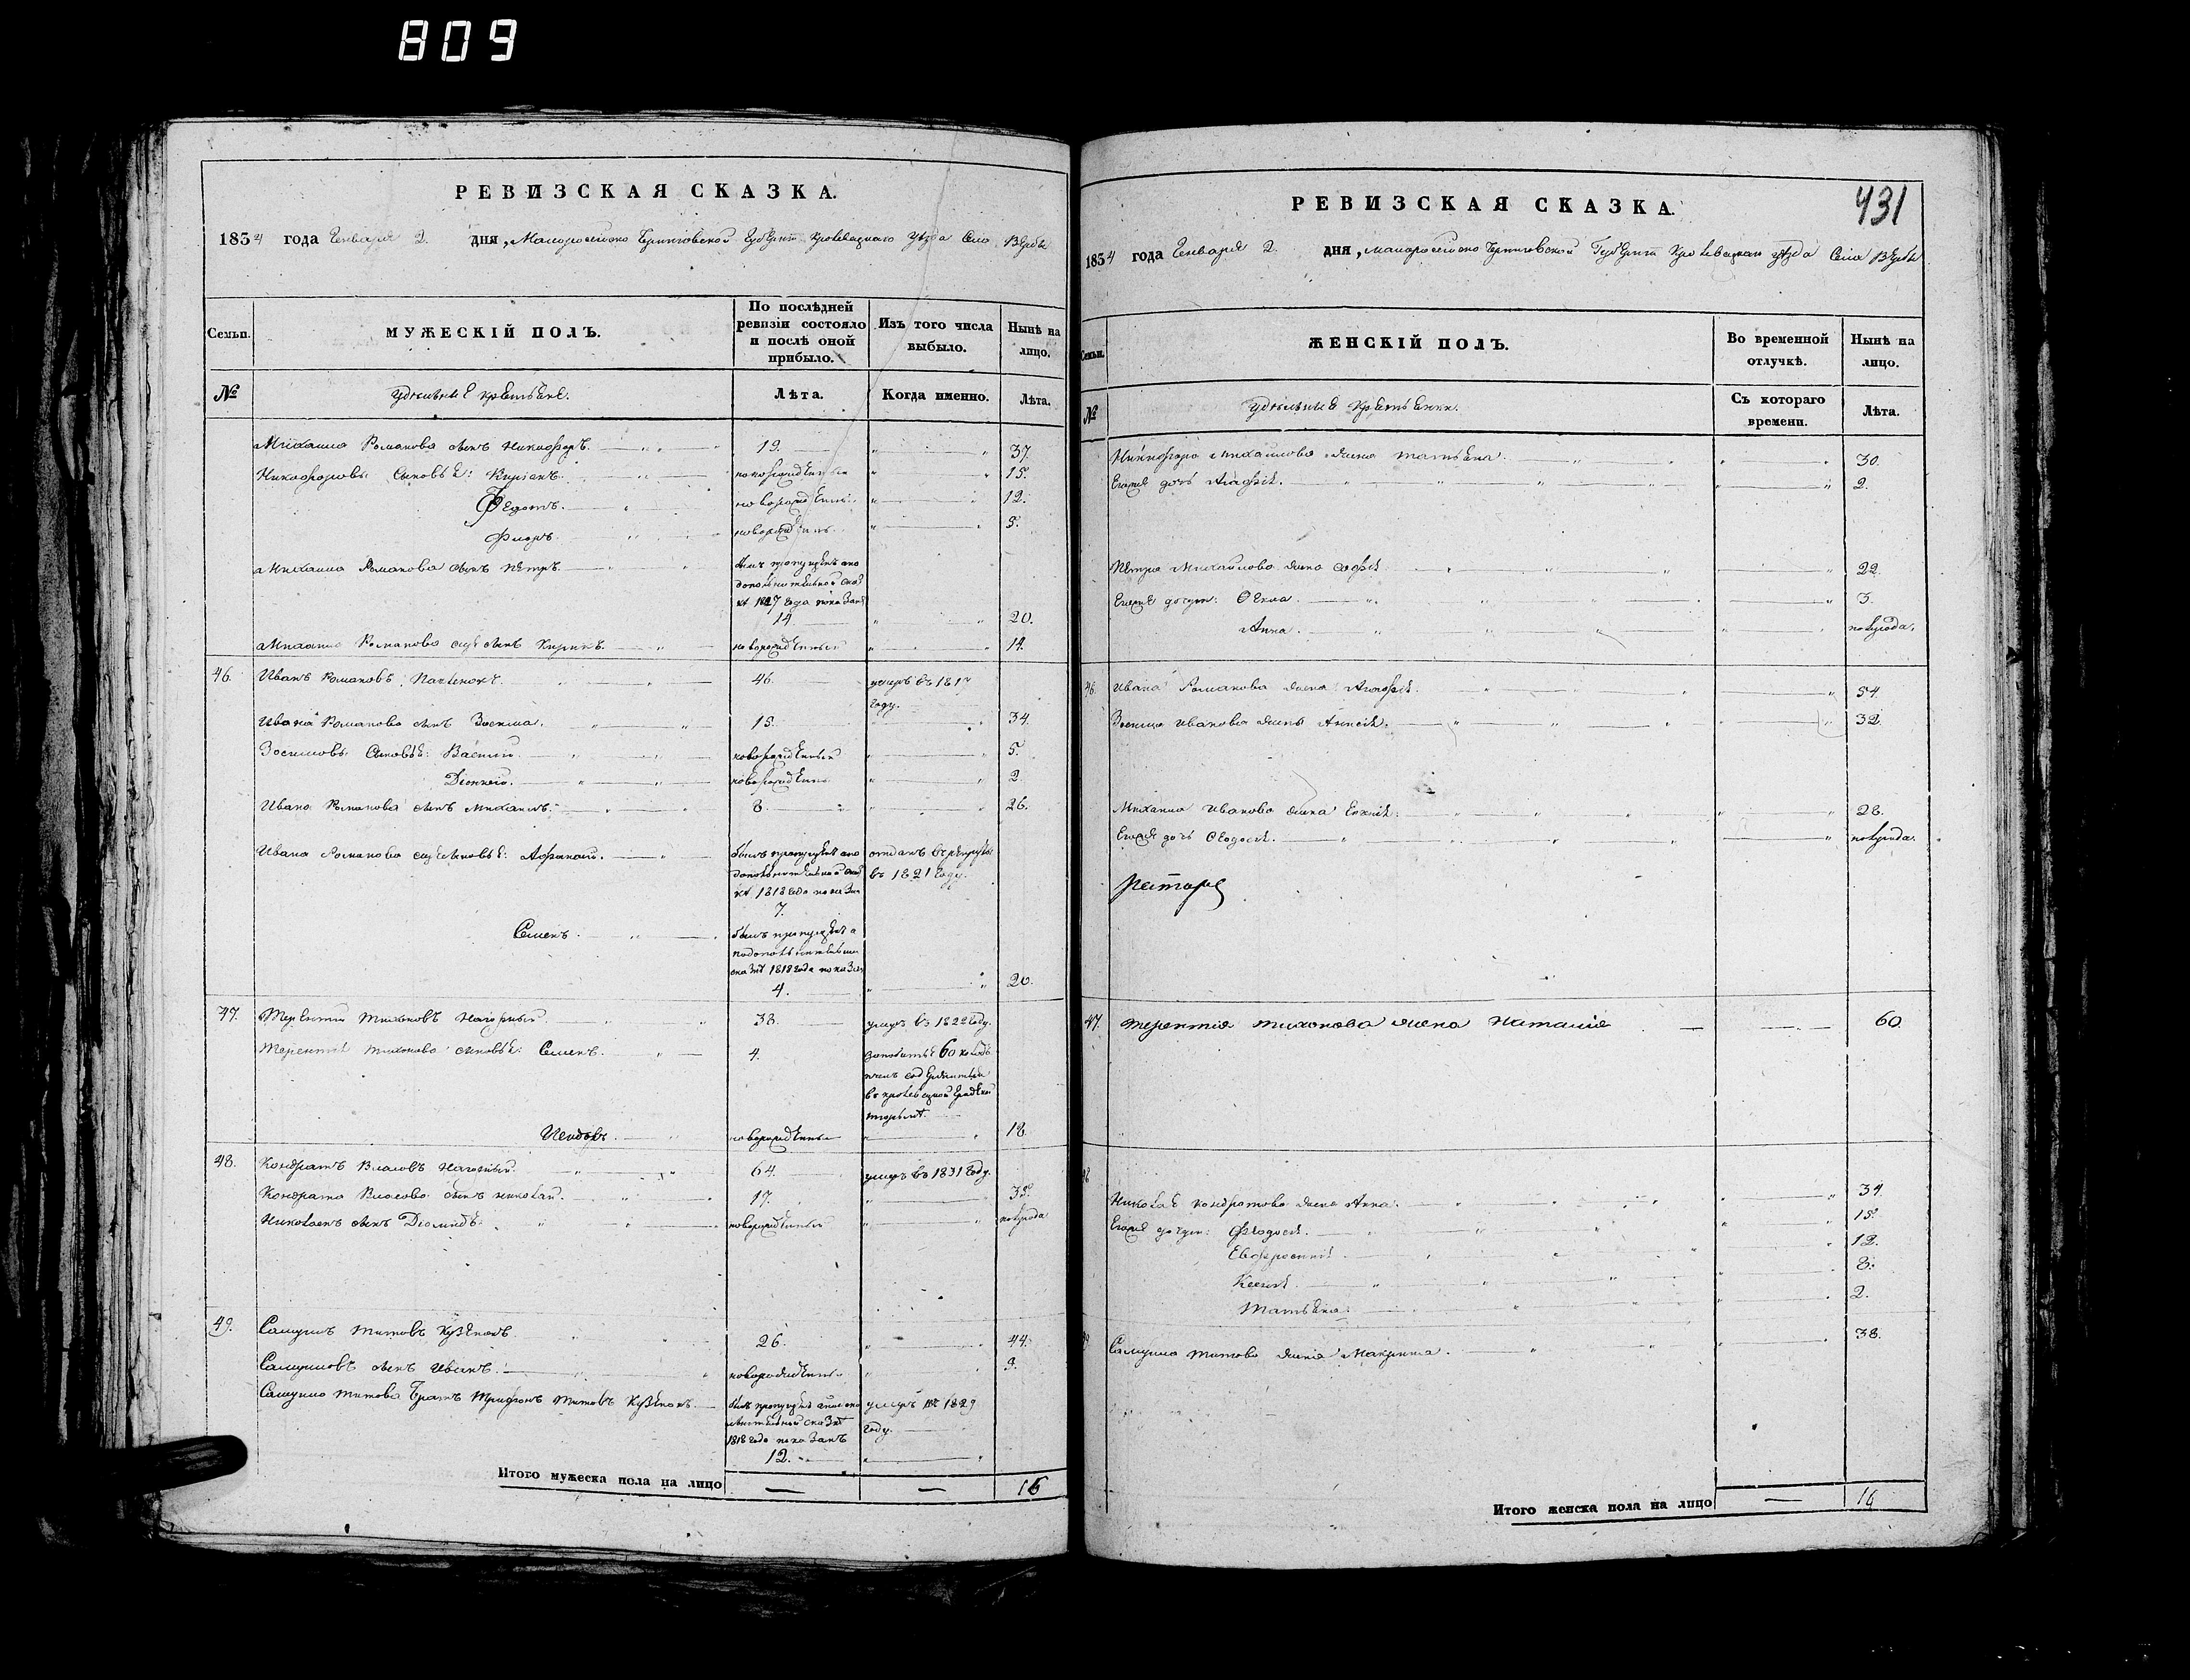 809
РЕВИЗСКАЯ СКАЗКА.
1834 года Генваря 2. дня, Малоросійско Черниговской Губерніи Кролевецкаго уѣзда Села Вербы
Семьи.
МУЖЕСКІЙ ПОЛЪ.
По послѣдней ревизіи состояло и послѣ оной прибыло.
Изъ того числа выбыло.
Нынѣ на лицо.
№
удельные крестьяне.
Лѣта.
Когда именно.
Лѣта.
Михаила Романова сынъ Никифоръ. 19. 37.
Никифоровы сыновья: Киріакъ. новорожденный 15.
Федотъ. новорожденный 12.
Флоръ. новорожденный 5.
Михаила Романова сынъ Петръ. былъ пропущенъ а по
дополнительной сказ
кѣ 1827 года показанъ
14. 20.
Михаила Романова сынъ новорожденный 14.
46. Иванъ Романовъ 46. умеръ въ 1817
году.
Ивана Романова сынъ Зосима. 15. 34.
Зосимовы сыновья: Василій новорожденный 5.
Діонисій. новорожденный 2.
Ивана Романова сынъ Михаилъ. 8. 26.
Ивана Романова сыновья: Афанасій. былъ пропущенъ а по отданъ въ рекруты
дополнительной сказ въ 1821 году.
кѣ 1818 года показанъ
7.
Семенъ. былъ пропущенъ а
по дополнительной
сказкѣ 1818 года показанъ
4. 20.
47. Терентій Тихоновъ Нагорный. 38. умеръ въ 1822 году.
Терентія Тихонова сыновья: Семенъ. 4. 60
пчелъ содержится
новорожденный 18.
48. Кондратъ Власовъ Нагорный. 64. умеръ въ 1831 году.
Кондрата Власова сынъ Николай. 17. 35.
Николаевъ сынъ Діомидъ. новорожденный полгода
49. Самуилъ Титовъ 26. 44.
Самуиловъ сынъ Иванъ. новорожденный 9.
Самуила Титова братъ Трифонъ Титовъ былъ пропущенъ умеръ въ 1829
сказкѣ году.
1818 года показанъ
12.
Итого мужеска пола на лицо — — 16
431
РЕВИЗСКАЯ СКАЗКА.
1834 года Генваря 2. дня, Малоросійско Черниговской Губерніи Кролевецкаго уѣзда Села Вербы
Семьи.
ЖЕНСКІЙ ПОЛЪ.
Во временной отлучкѣ.
Нынѣ на лицо.
№
удельные крестьянки.
Съ котораго времени.
Лѣта.
Никифора Михайлова жена Татьяна. 30.
Егоже дочь Агафія. 2.
Петра Михайлова жена Софія 22.
Егоже дочери: Фекла. 3.
Анна. полгода.
46. Ивана Романова жена Агафія. 54.
Зосима Иванова жена 32.
Михаила Иванова жена 28.
Егоже дочь Феодосія. полгода.
47. Терентія Тихонова жена Наталія 60.
48
Николая Кондратова жена Анна. 34.
Егоже дочери: Феодосія. 15.
Евфросинія 12.
Ксенія 8.
Татьяна. 2.
Самуила Титова жена Макрина. 38.
Итого женска пола на лицо — 16